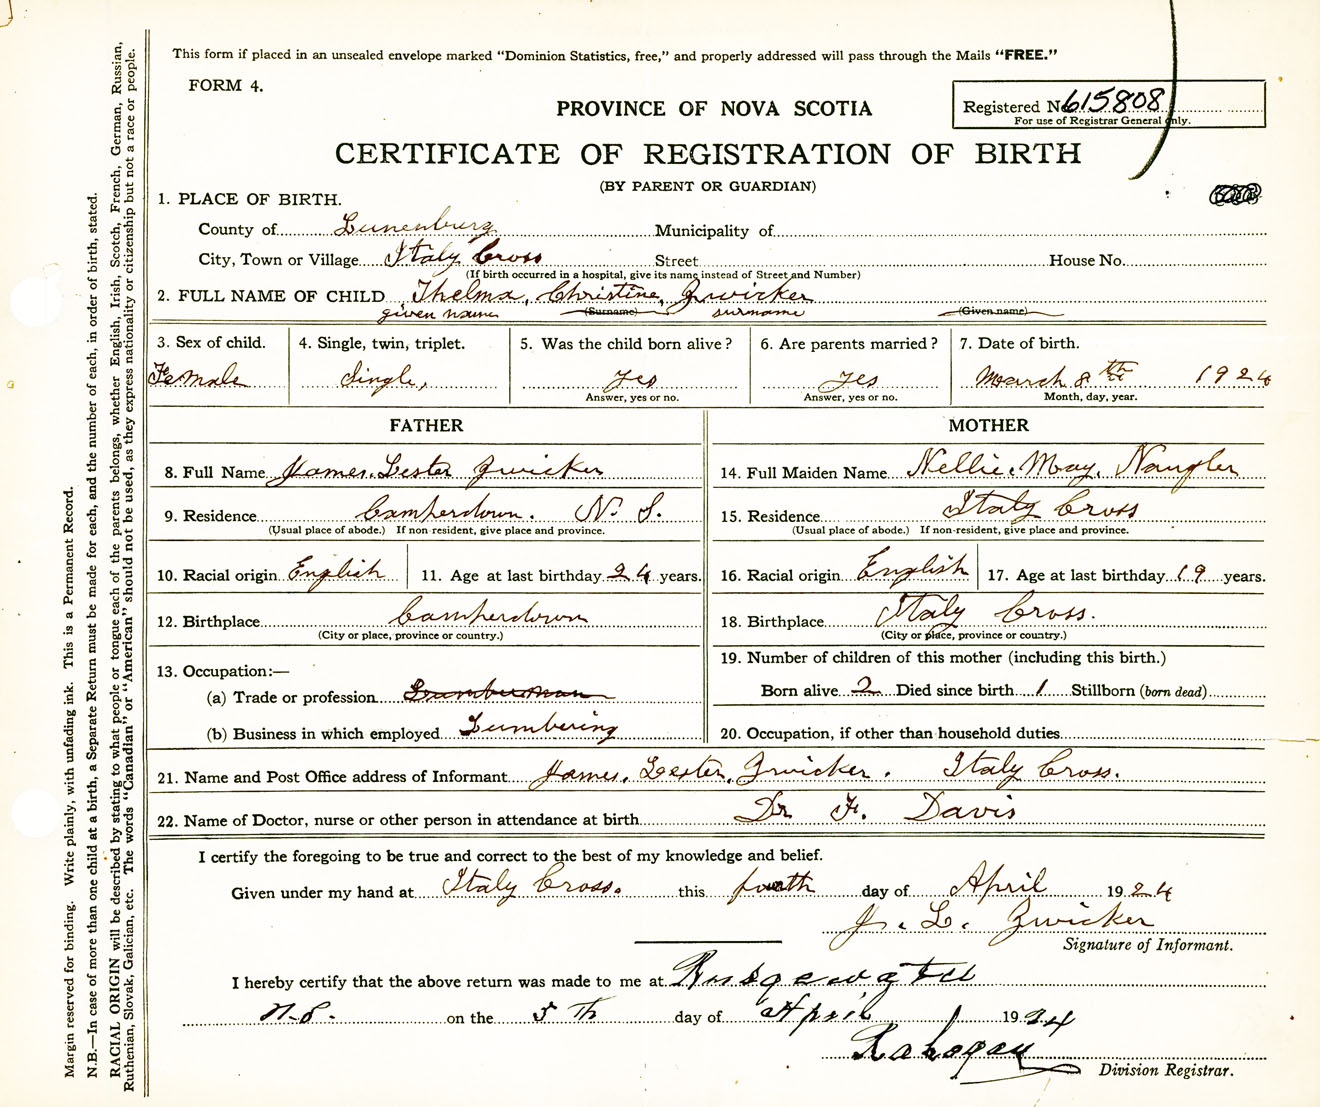 This form if placed in an unsealed envelope marked “Dominion Statistics, free,” and properly addressed will pass through the Mails “FREE.”
FORM 4.
Registered No. 615808
For use of Registrar General only.
PROVINCE OF NOVA SCOTIA
CERTIFICATE OF REGISTRATION OF BIRTH
(BY PARENT OR GUARDIAN)
1. PLACE OF BIRTH.
County of Lunenburg Municipality of
City, Town or Village Italy Cross Street House No.
(If birth occurred in a hospital, give its name instead of Street and Number)
2. FULL NAME OF CHILD Thelma, Christine, Zwicker
given name (Surname) surname (Given name)
3. Sex of child. 4. Single, twin, triplet. 5. Was the child born alive? 6. Are parents married? 7. Date of birth.
Female Single, yes yes March 8th 1924
Answer, yes or no. Answer, yes or no. Month, day, year.
FATHER
8. Full Name James. Lester Zwicker
9. Residence Camperdown. N. S.
(Usual place of abode.) If non-resident, give place and province.
10. Racial origin English 11. Age at last birthday 24 years.
12. Birthplace Camperdown
(City or place, province or country.)
13. Occupation:—
(a) Trade or profession Lumberman
(b) Business in which employed Lumbering
MOTHER
14. Full Maiden Name Nellie. May. Naugler
15. Residence Italy Cross
(Usual place of abode.) If non-resident, give place and province.
16. Racial origin English 17. Age at last birthday 19 years.
18. Birthplace Italy Cross.
(City or place, province or country.)
19. Number of children of this mother (including this birth.)
Born alive 2 Died since birth 1 Stillborn (born dead)
20. Occupation, if other than household duties
21. Name and Post Office address of Informant James. Lester. Zwicker. Italy Cross.
22. Name of Doctor, nurse or other person in attendance at birth Dr F. Davis
I certify the foregoing to be true and correct to the best of my knowledge and belief.
Given under my hand at Italy Cross. this fourth day of April 1924
J. L. Zwicker
Signature of Informant.
I hereby certify that the above return was made to me at
N.S. on the 5th day of April 1924
Division Registrar.
Margin reserved for binding. Write plainly, with unfading ink. This is a Permanent Record.
N.B.—In case of more than one child at a birth, a Separate Return must be made for each, and the number of each, in order of birth, stated.
RACIAL ORIGIN will be described by stating to what people or tongue each of the parents belongs, whether English, Irish, Scotch, French, German, Russian,
Ruthenian, Slovak, Galician, etc. The words “Canadian” or “American” should not be used, as they express nationality or citizenship but not a race or people.